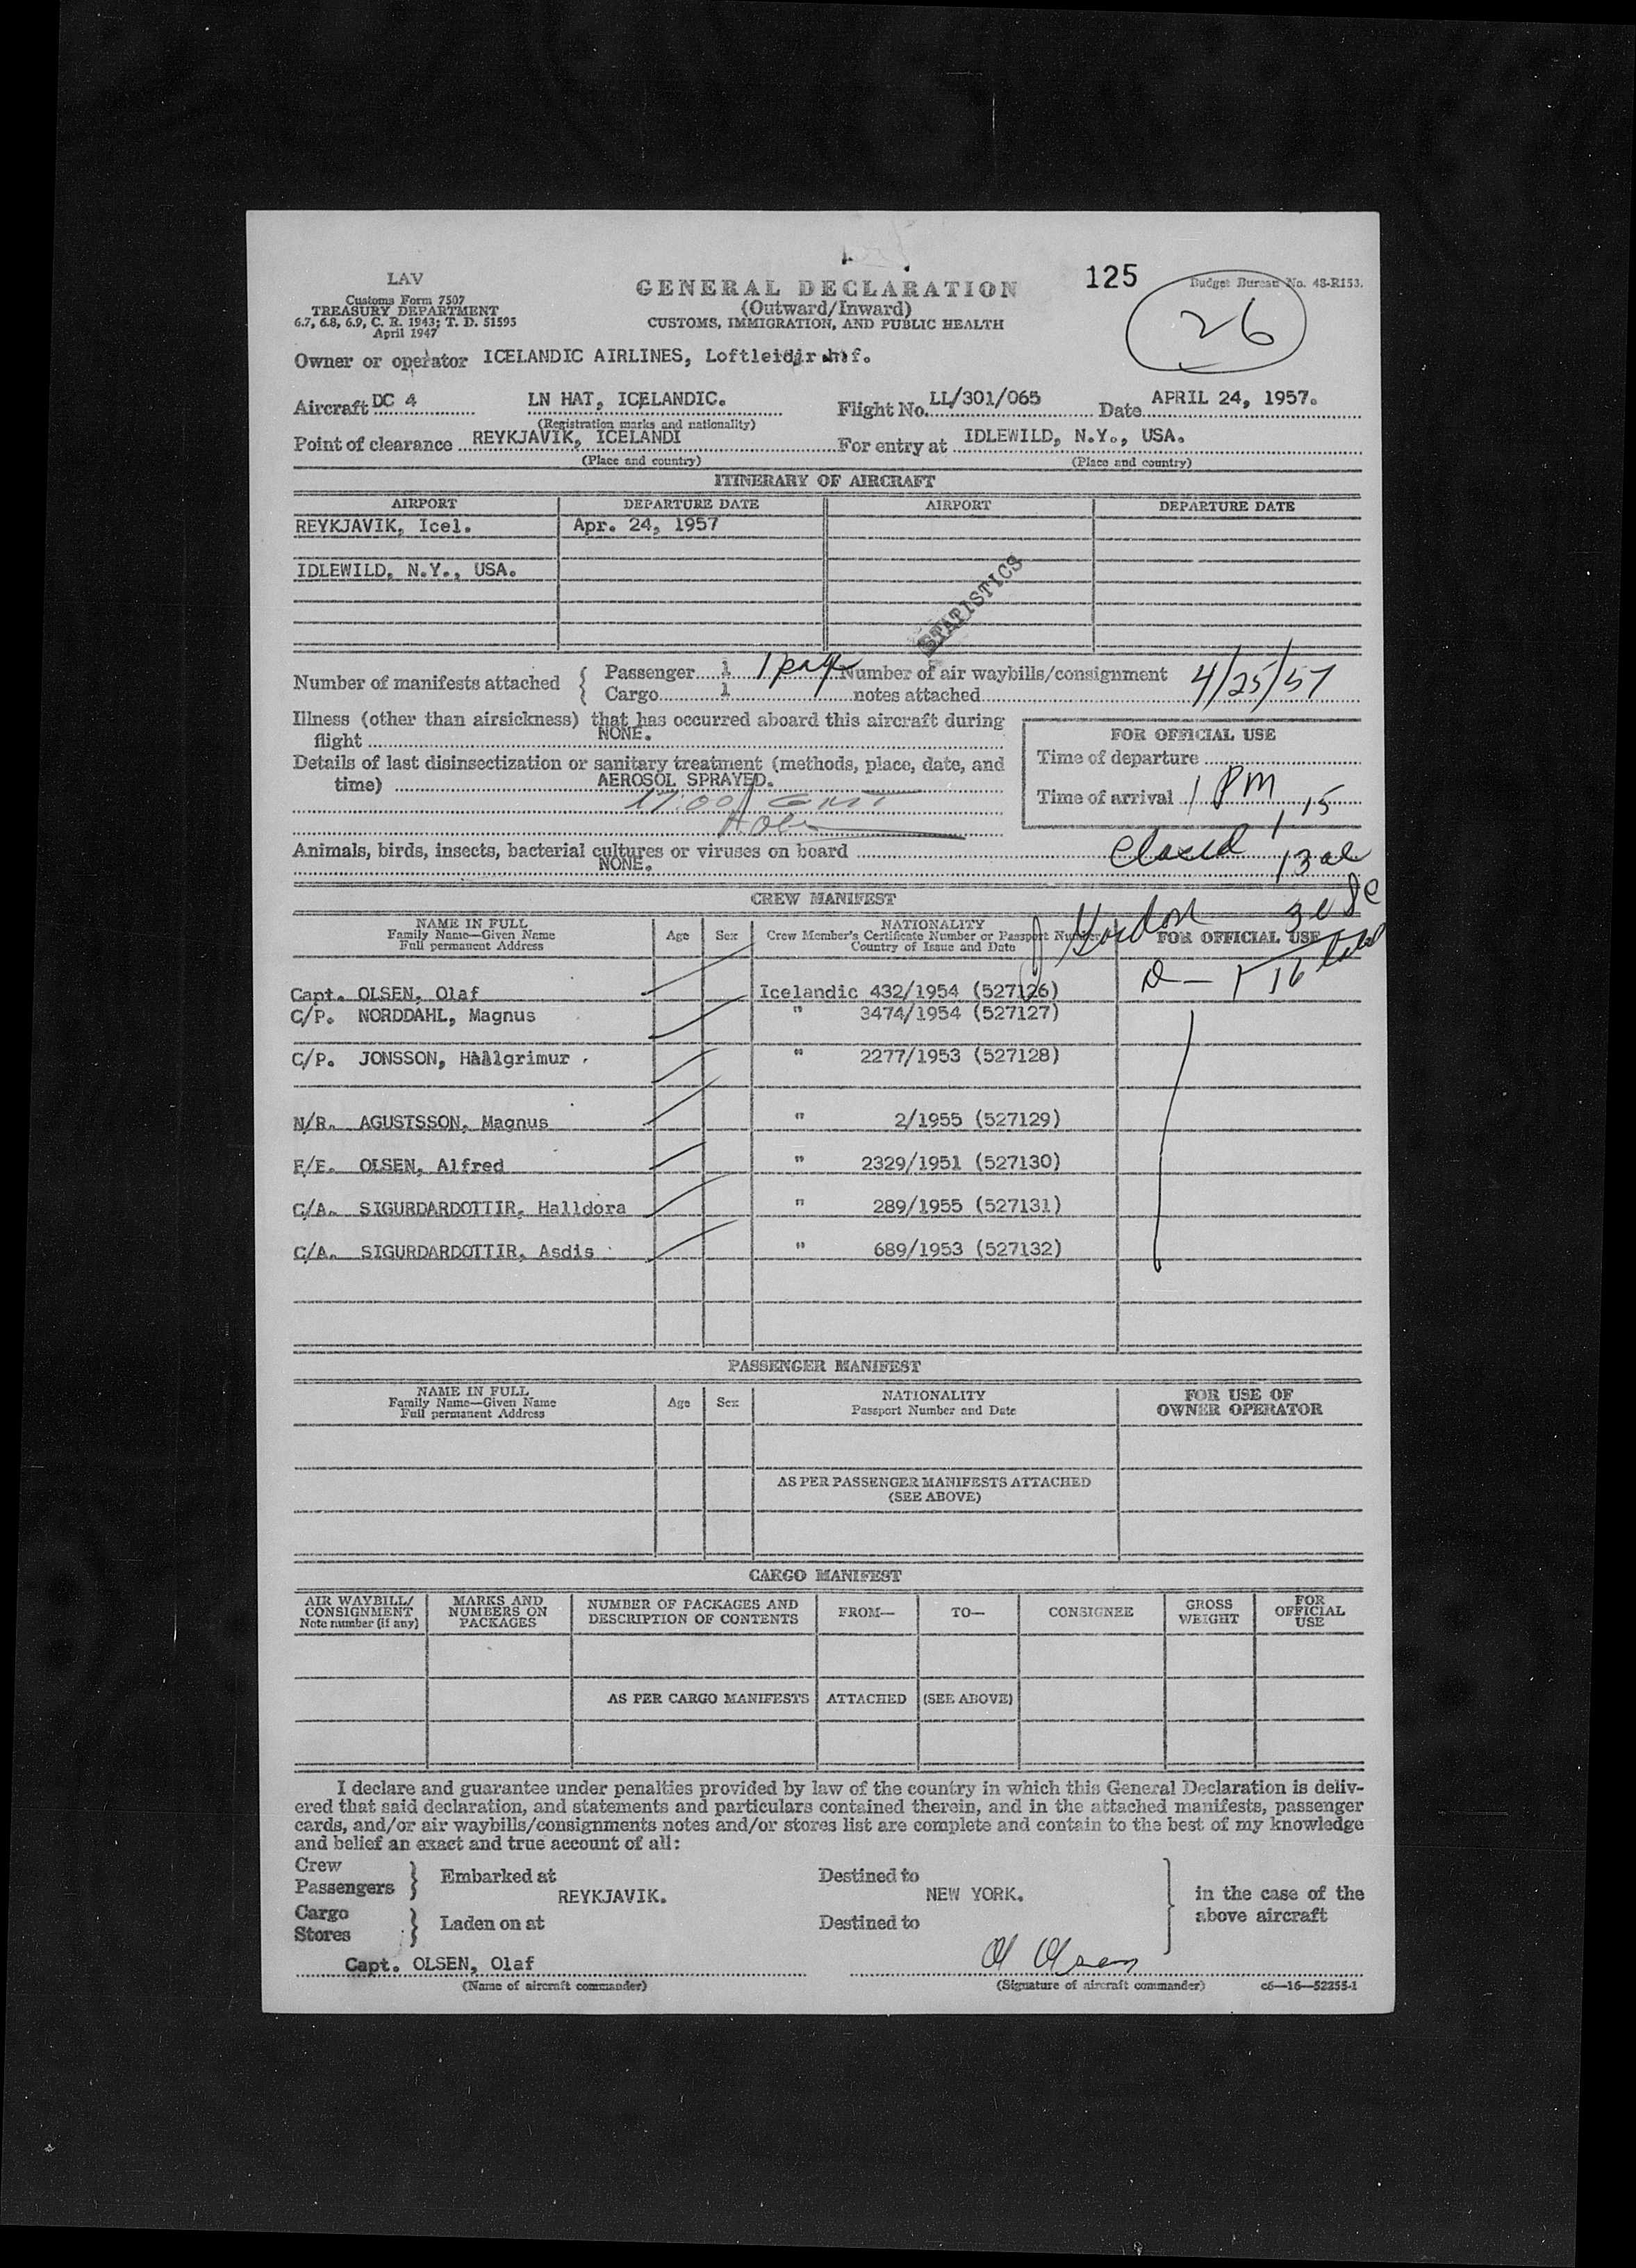 125
LAV
Customs Form 7507
TREASURY DEPARTMENT
6.7, 6.8, 6.9, C. R. 1943; T. D. 51595
April 1947
GENERAL DECLARATION
(Outward/Inward)
CUSTOMS, IMMIGRATION, AND PUBLIC HEALTH
Budget Bureau No. 48-R153.
26
Owner or operator ICELANDIC AIRLINES, Loftleidir h.f.
Aircraft DC 4 LN HAT, ICELANDIC. Flight No. LL/301/065 Date APRIL 24, 1957.
(Registration marks and nationality)
Point of clearance REYKJAVIK, ICELANDI For entry at IDLEWILD, N.Y., USA.
(Place and country) (Place and country)
ITINERARY OF AIRCRAFT
AIRPORT DEPARTURE DATE AIRPORT DEPARTURE DATE
REYKJAVIK, Icel. Apr. 24, 1957
IDLEWILD, N.Y., USA.
STATISTICS
Number of manifests attached { Passenger 1 1 page Number of air waybills/consignment 4/25/57
Cargo 1 notes attached
Illness (other than airsickness) that has occurred aboard this aircraft during
flight NONE.
FOR OFFICIAL USE
Details of last disinsectization or sanitary treatment (methods, place, date, and
time) AEROSOL SPRAYED.
17:00 GMT
Time of departure
Time of arrival 1 PM
1,15
Animals, birds, insects, bacterial cultures or viruses on board
NONE.
closed
CREW MANIFEST
NAME IN FULL
Family Name—Given Name
Full permanent Address
Age Sex
NATIONALITY
Crew Member's Certificate Number or Passport Number
Country of Issue and Date
FOR OFFICIAL USE
Capt. OLSEN, Olaf Icelandic 432/1954 (527126)
C/P. NORDDAHL, Magnus " 3474/1954 (527127)
C/P. JONSSON, Hallgrimur " 2277/1953 (527128)
N/R. AGUSTSSON, Magnus " 2/1955 (527129)
F/E. OLSEN, Alfred " 2329/1951 (527130)
C/A. SIGURDARDOTTIR, Halldora " 289/1955 (527131)
C/A. SIGURDARDOTTIR, Asdis " 689/1953 (527132)
PASSENGER MANIFEST
NAME IN FULL
Family Name—Given Name
Full permanent Address
Age Sex
NATIONALITY
Passport Number and Date
FOR USE OF
OWNER OPERATOR
AS PER PASSENGER MANIFESTS ATTACHED
(SEE ABOVE)
CARGO MANIFEST
AIR WAYBILL/
CONSIGNMENT
Note number (if any)
MARKS AND
NUMBERS ON
PACKAGES
NUMBER OF PACKAGES AND
DESCRIPTION OF CONTENTS
FROM— TO— CONSIGNEE
GROSS
WEIGHT
FOR
OFFICIAL
USE
AS PER CARGO MANIFESTS ATTACHED (SEE ABOVE)
I declare and guarantee under penalties provided by law of the country in which this General Declaration is deliv-
ered that said declaration, and statements and particulars contained therein, and in the attached manifests, passenger
cards, and/or air waybills/consignments notes and/or stores list are complete and contain to the best of my knowledge
and belief an exact and true account of all:
Crew
Passengers } Embarked at REYKJAVIK. Destined to NEW YORK.
Cargo
Stores } Laden on at Destined to
in the case of the
above aircraft
Capt. OLSEN, Olaf Ol Olsen
(Name of aircraft commander) (Signature of aircraft commander) c6—16—52255-1